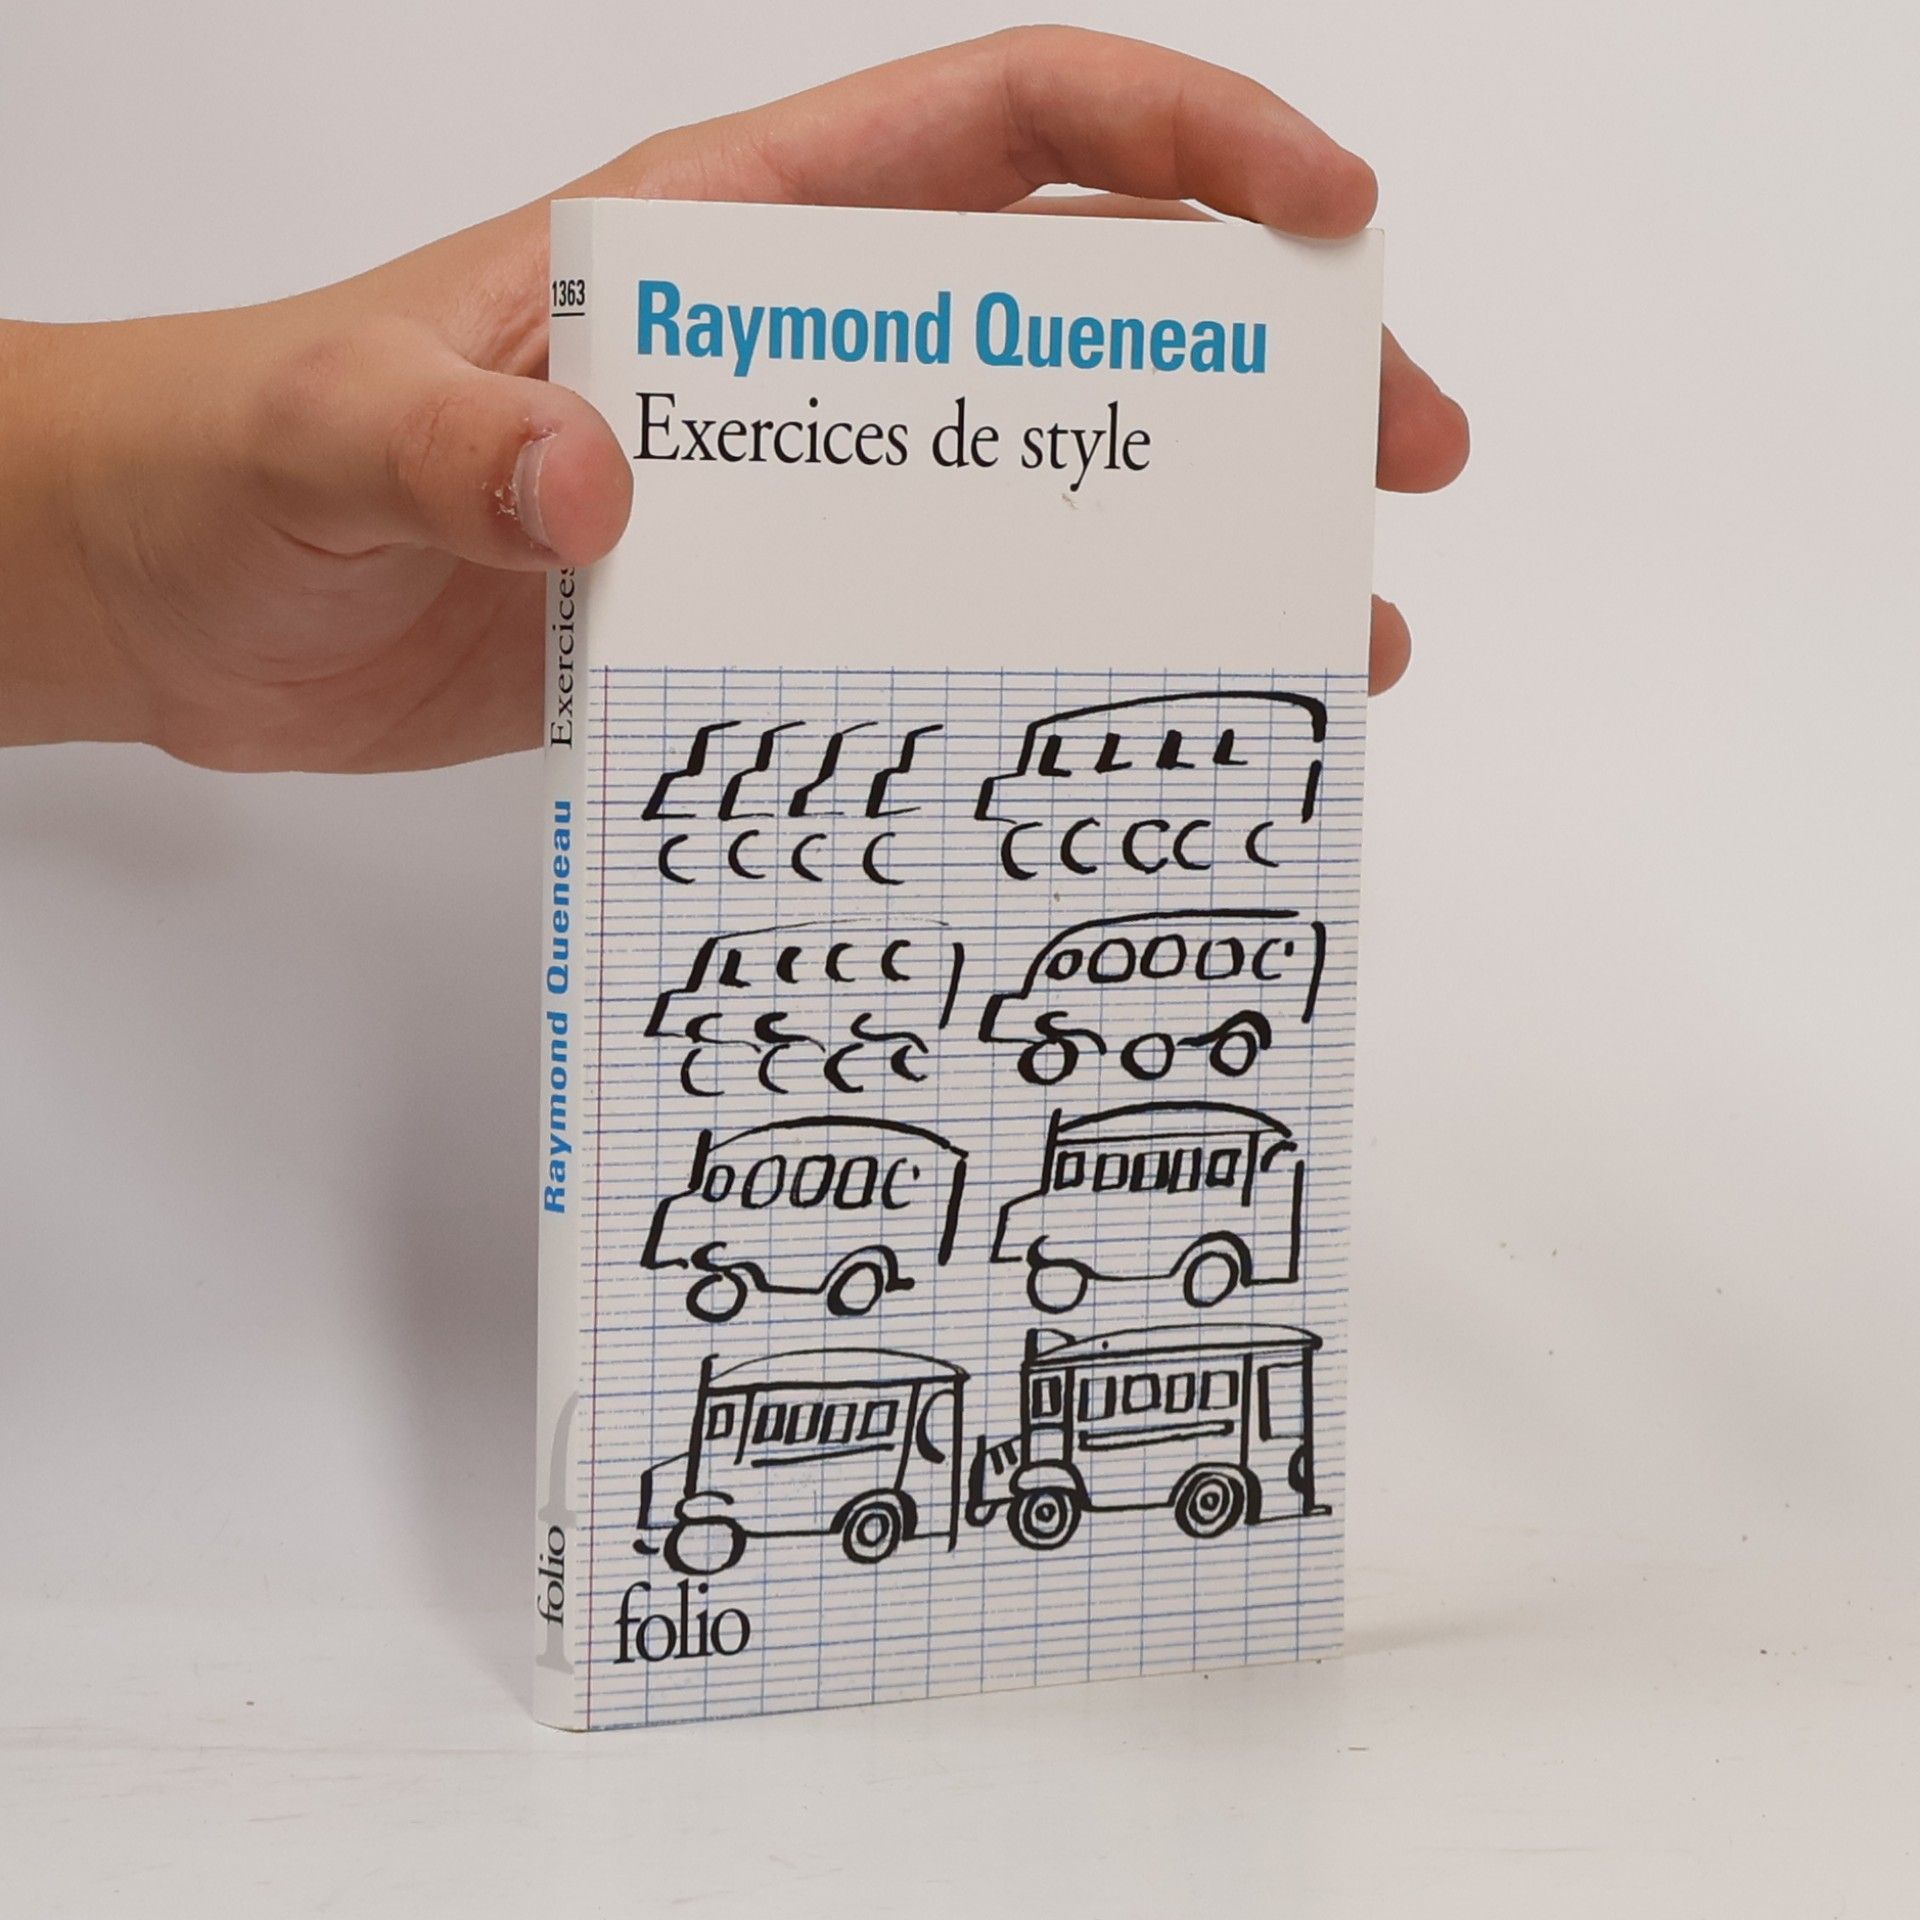 1363
Raymond Queneau
Exercices de style
Raymond Queneau Exercices
folio
folio